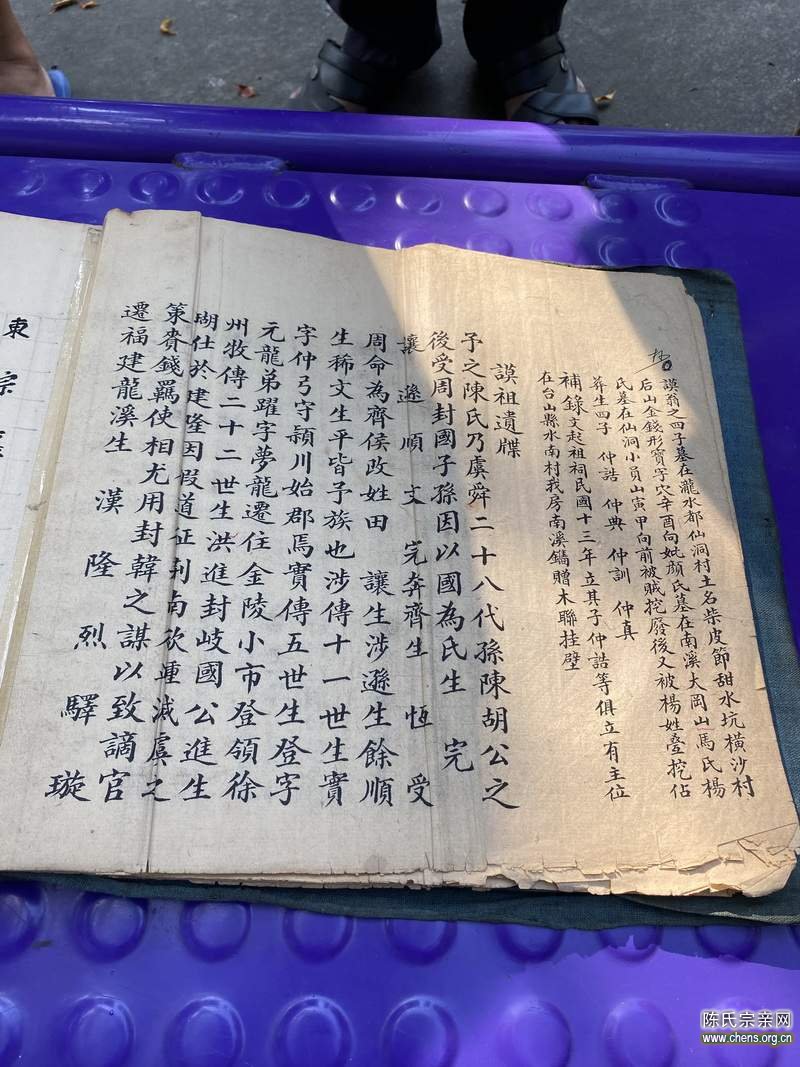 謨翁之四子墓在瀧水都仙洞村土名柴皮節甜水坑橫沙村
后山金錢形寅字穴辛酉向妣顏氏墓在南溪大岡山馬氏楊
氏墓在仙洞小員山寅甲向前被賊挖廢後又被楊姓叠挖佔
葬生四子 仲誥 仲典 仲訓 仲真
補錄文起祖祠民國十三年立其子仲誥等俱立有主位
在台山縣水南村我房南溪鐫贈木聯挂壁
謨祖遺牒
予之陳氏乃虞舜二十八代孫陳胡公之
後受周封國子孫因以國為氏生 完
讓遜順文 完奔齊生 恆受
周命為齊侯改姓田 讓生涉遜生餘順
生稀文生平皆子族也涉傳十一世生實
字仲弓守潁川始郡焉實傳五世生登字
元龍弟躍字夢龍遷住金陵小市登領徐
州牧傳二十二世生洪進封岐國公進生
瑚仕於建隆因假道征荆南砍連滅虞之
策賚錢羈使相尤用封韓之謀以致謫官
遷福建龍溪生 漢 隆 烈 驛 璇
東 宗
陈氏宗亲网
www.chens.org.cn